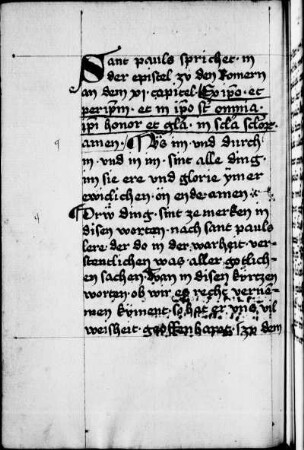 Sant pauls sprichet · in
der epistel zů den Romern
an dem xi capitel · Ex ipo · et
per ipm · et in ipo st · omnia ·
ipi honor et gla · in scla sclor
amen · Vs im vnd durch
in · vnd in im · sint alle ding ·
im sie ere vnd glorie ymer
ewiclichen · on ende · amen
Drw ding · sint ze merken in
disen worten · nach sant pauls
lere der do in der warheit ver-
stentlichen was · aller gotlich-
en sachen · wan in disen kürtzen
worten · ob wir es recht verne-
men kument · so hat er vns vil
weisheit · geoffenbaret · zů dem